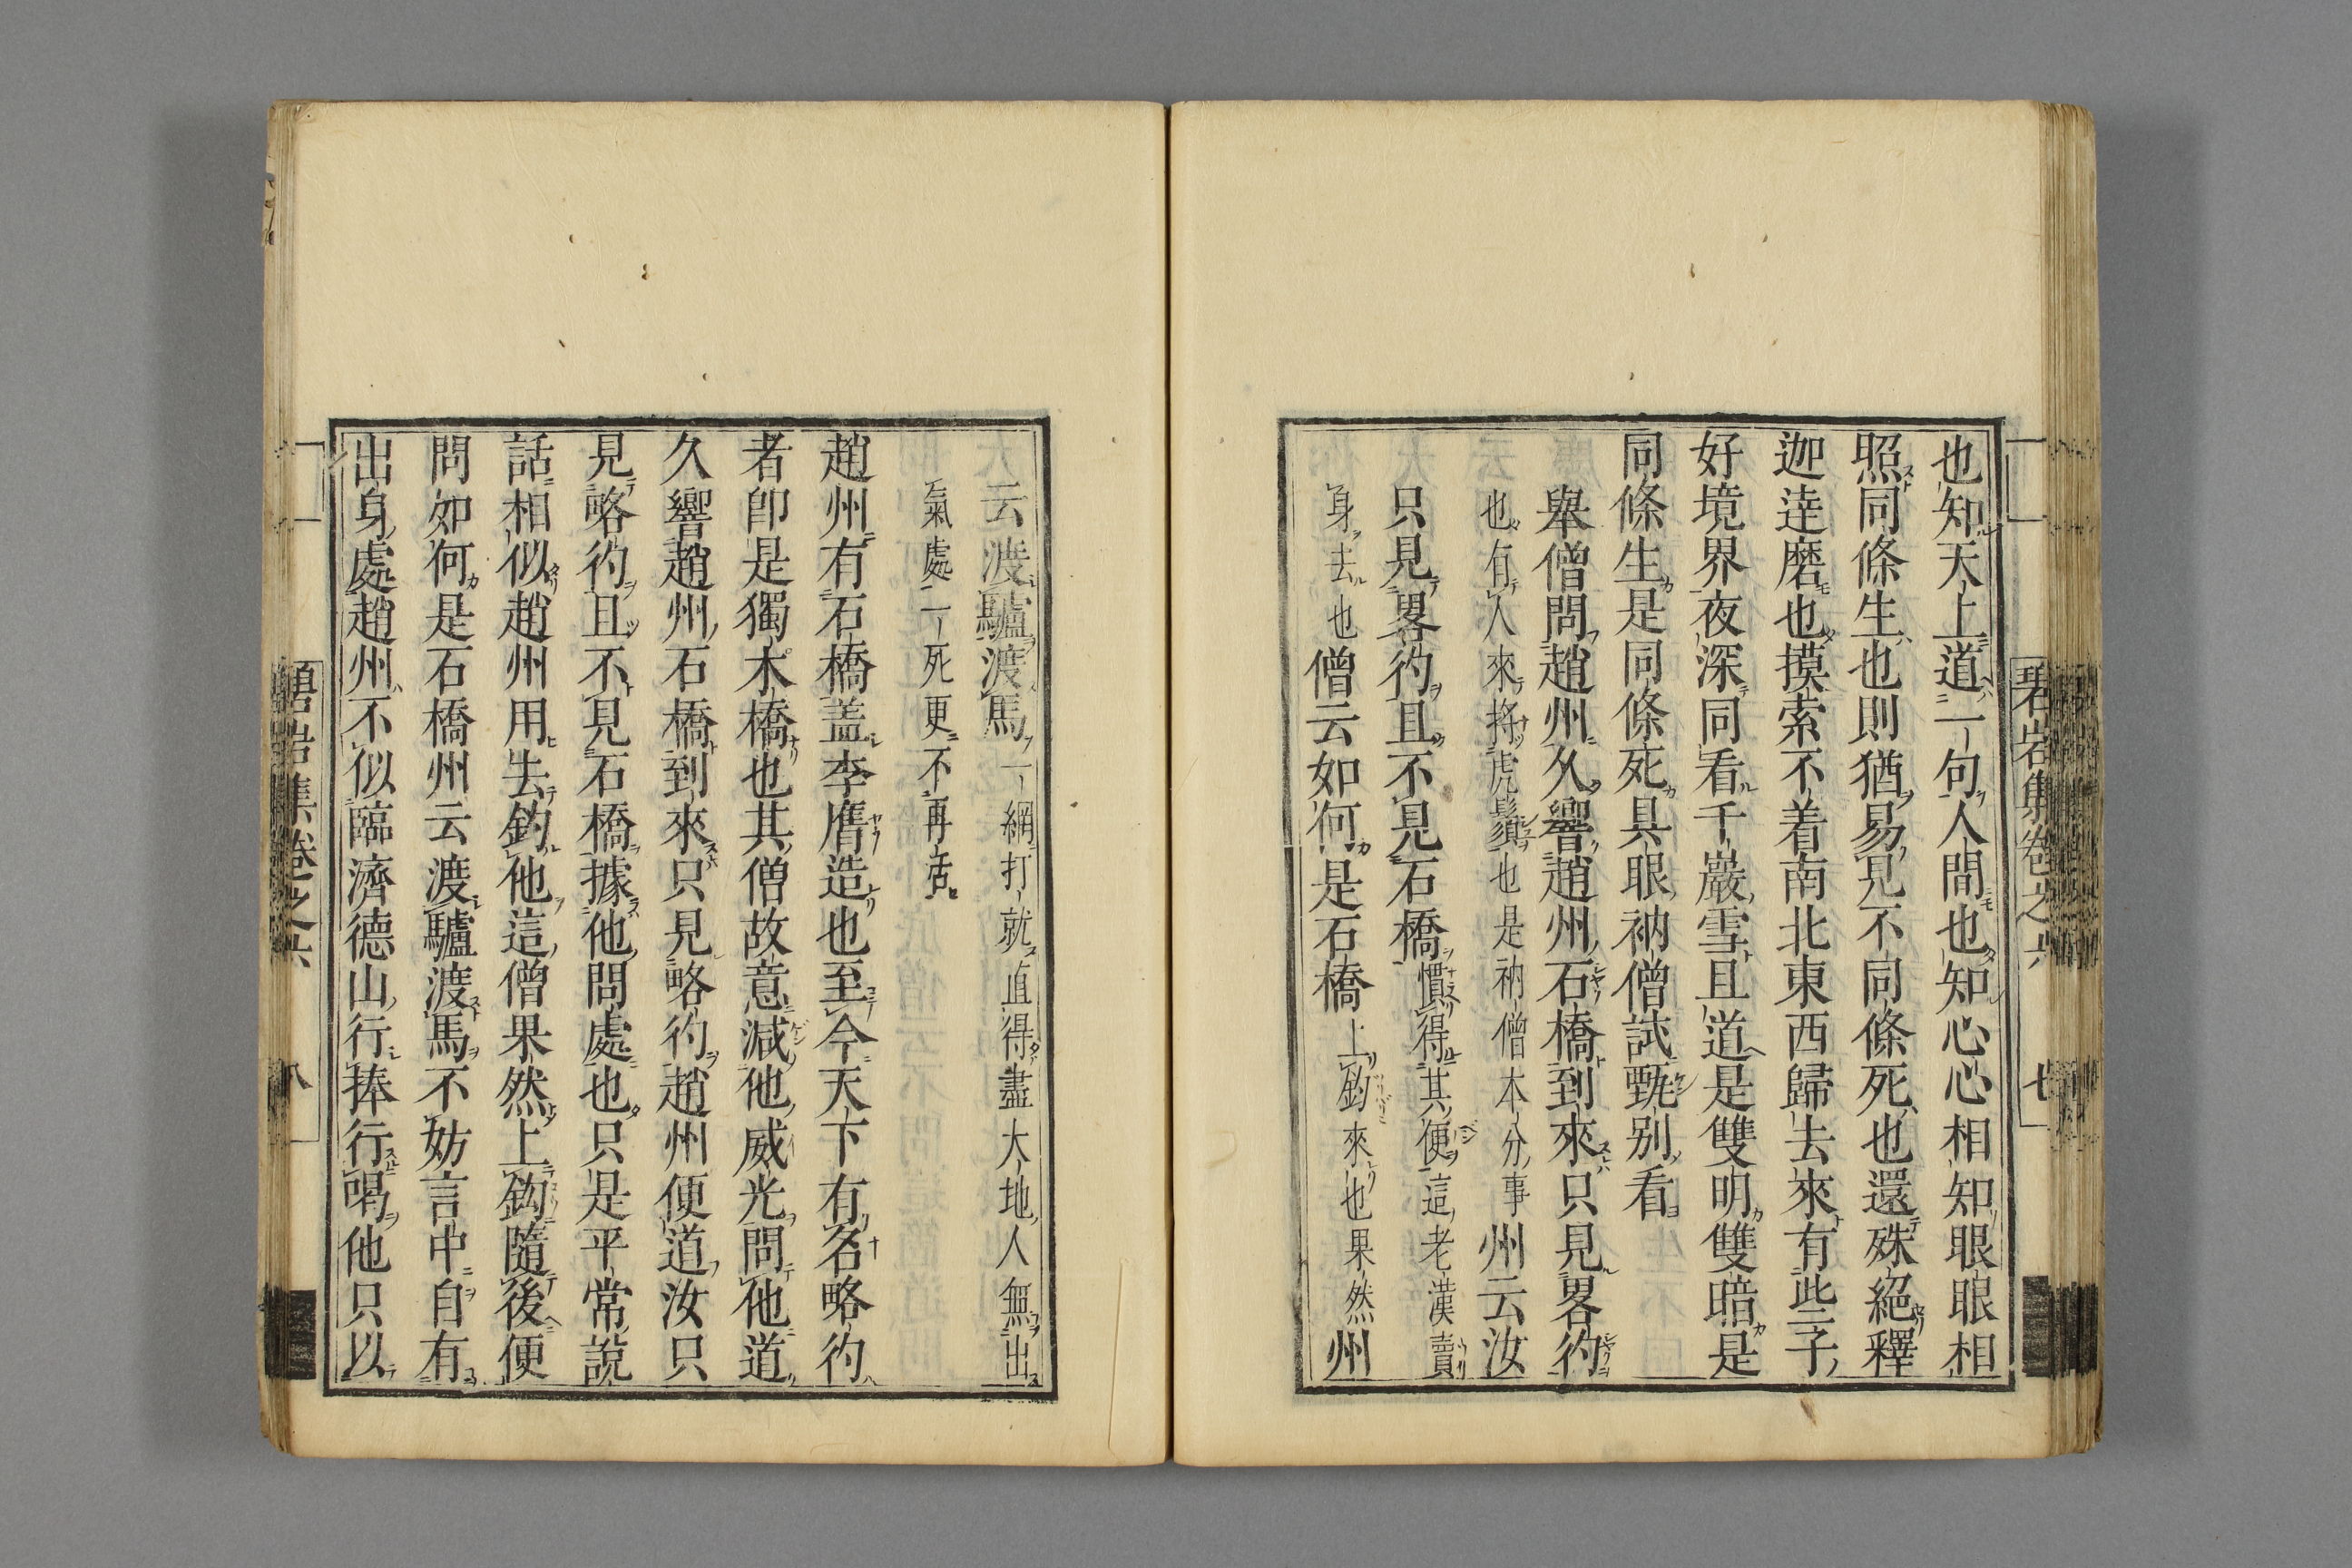 也知天上道一句人間也知心心相知眼眼相
照同條生也則猶易見不同條死也還殊絕釋
迦達磨也摸索不着南北東西歸去來有些子
好境界夜深同看千巖雪且道是雙明雙暗是
同條生是同條死具眼衲僧試甄別看
舉僧問趙州久響趙州石橋到來只見畧彴
也有人來捋虎鬚也是衲僧本分事州云汝
只見畧彴且不見石橋慣得其便這老漢賣
身去也僧云如何是石橋上鈎來也果然州
碧岩集卷之六 七
云渡驢渡馬一網打就直得盡大地人無出
氣處一死更不再活
趙州有石橋盖李膺造也至今天下有名略彴
者卽是獨木橋也其僧故意減他威光問他道
久響趙州石橋到來只見略彴趙州便道汝只
見略彴且不見石橋據他問處也只是平常說
話相似趙州用去釣他這僧果然上鈎隨後便
問如何是石橋州云渡驢渡馬不妨言中自有
出身處趙州不似臨濟德山行捧行喝他只以
碧岩集卷之六 八